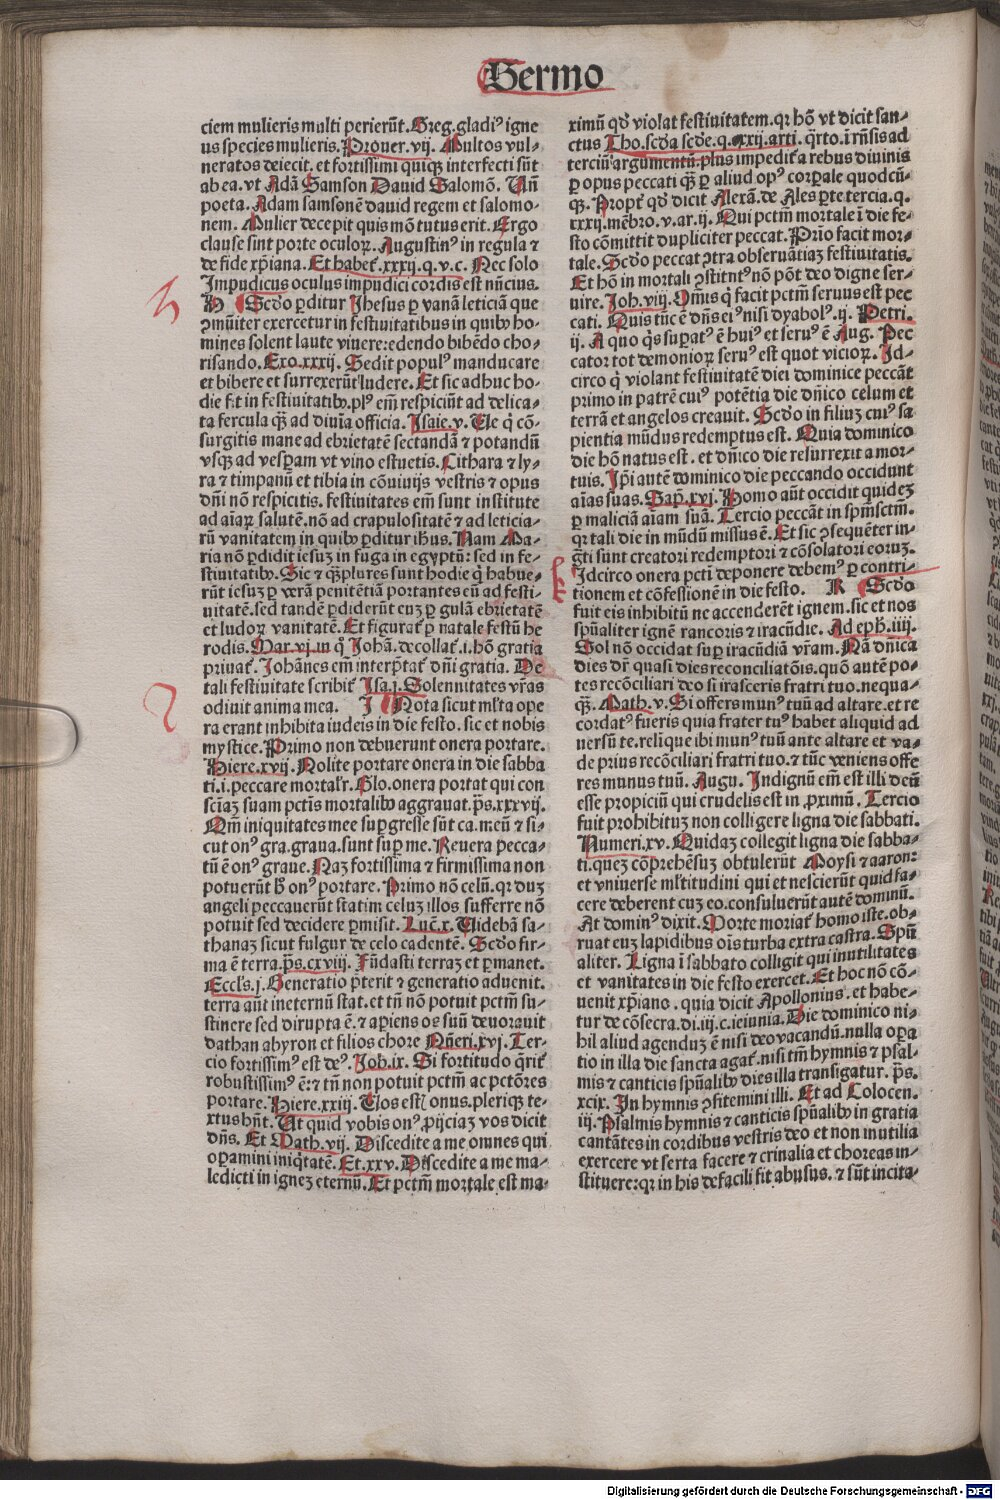 Sermo
ciem mulieris multi perierūt. Greg. gladiꝰ igne
us species mulieris. Prouer. vij. Multos vul-
neratos deiecit. et fortissimi quiqꝫ interfecti sūt
ab ea. vt Adā Samson Dauid Salomō. Uñ
poeta. Adam samsonē dauid regem et salomo-
nem. Mulier decepit quis mō tutus erit. Ergo
clause sint porte oculoꝝ. Augustinꝰ in regula ⁊
de fide xp̄iana. Et habet̃. xxxij. q. v. c. Nec solo
Impudicus oculus impudici cordis est nūcius.
H Scd̓o ꝑditur Jhesus ꝑ vanā leticiā que
ꝯmūiter exercetur in festiuitatibus in quibꝫ ho-
mines solent laute viuere: edendo bibēdo cho-
risando. Exo. xxxij. Sedit populꝰ manducare
et bibere et surrexerūt ludere. Et sic adhuc ho-
die fit in festiuitatibꝫ. plꝰ em̄ respiciūt ad delica-
ta fercula qꝫ ad diuīa officia. Isaie. v. Ue q̇ cō-
surgitis mane ad ebrietatē sectandā ⁊ potandū
vsqꝫ ad vesꝑam vt vino estuetis. Cithara ⁊ ly-
ra ⁊ timpanū et tibia in cōuiuijs vestris ⁊ opus
dn̄i nō respicitis. festiuitates em̄ sunt institute
ad aīaꝝ salutē. nō ad crapulositatē ⁊ ad leticia-
rū vanitatem in quibꝫ ꝑditur ih̄us. Nam Ma-
ria nō ꝑdidit iesuꝫ in fuga in egyptū: sed in fe-
stiuitatibꝫ. Sic ⁊ qꝫplures sunt hodie q̇ habue-
rūt iesuꝫ ꝑ verā penitētiā portantes eū ad festi-
uitatē. sed tandē ꝑdiderūt euꝫ ꝑ gulā ebrietatē
et ludoꝝ vanitatē. Et figurat̃ ꝑ natale festū he
rodis. Mar. vj. in q̊ Johā. decollat̃. i. hō gratia
priuat̃. Johānes em̄ interp̄tat̃ dn̄i gratia. De
tali festiuitate scribit̃ Isa. j. Solennitates vr̄as
odiuit anima mea. J Nota sicut ml̓ta ope
ra erant inhibita iudeis in die festo. sic et nobis
mystice. Primo non debuerunt onera portare.
Hiere. xvij. Nolite portare onera in die sabba
ti. i. peccare mortal̓r. Illo. onera portat qui con
sciaꝫ suam pctīs mortalibꝫ aggrauat. p̄s. xxxvij.
Qm̄ iniquitates mee suꝑgresse sūt ca. meū ⁊ si-
cut onꝰ gra. graua. sunt suꝑ me. Reuera pecca-
tū ē onꝰ graue. Naꝫ fortissima ⁊ firmissima non
potuerūt h̓ onꝰ portare. Primo nō celū. qꝛ duꝫ
angeli peccauerūt statim celuꝫ illos sufferre nō
potuit sed decidere ꝑmisit. Luc̄. x. Uidebā sa-
thanaꝫ sicut fulgur de celo cadentē. Scd̓o fir-
ma ē terra. p̄s. cxviij. Fūdasti terraꝫ et ꝑmanet.
Eccl̓s. j. Generatio p̄terit ⁊ generatio aduenit.
terra aūt ineternū stat. et tn̄ nō potuit pctm̄ su-
stinere sed dirupta ē. ⁊ aꝑiens os suū deuorauit
dathan abyron et filios chore Nūeri. xvj. Ter-
cio fortissimꝰ est deꝰ. Job. ix. Si fortitudo q̄rit̃
robustissimꝰ ē: ⁊ tn̄ non potuit pctm̄ ac pctōres
portare. Hiere. xxiij. Uos estl̓ onus. pleriqꝫ te-
xtus hn̄t. Ut quid vobis onꝰ. ꝓijciaꝫ vos dicit
dn̄s. Et Math. vij. Discedite a me omnes qui
oꝑamini iniq̇tatē. Et. xxv. Discedite a me ma-
ledicti in igneꝫ eternū. Et pctm̄ mortale est ma-
ximū qd̓ violat festiuitatem. qꝛ hō vt dicit san-
ctus Tho. scd̓a scd̓e. q. cxxij. arti. q̄rto. ī rn̄sis ad
terciū argumentū. plus impedit̃ a rebus diuinis
ꝑ opus peccati qꝫ ꝑ aliud opꝰ corꝑale quodcū-
qꝫ. Propt̃ qd̓ dicit Alexā. de Ales ꝑte tercia. q.
xxxij. mēbro. v. ar. ij. Qui pctm̄ mortale ī die fe-
sto cōmittit dupliciter peccat. Prīo facit mor-
tale. Scd̓o peccat ꝯtra obseruātiaꝫ festiuitatis.
Et hō in mortali ꝯstitutꝰ nō pōt deo digne ser-
uire. Joh. viij. Om̄is q̇ facit pctm̄ seruus est pec
cati. Quis tūc ē dn̄s eiꝰ nisi dyabolꝰ. ij. Petri.
ij. A quo q̇s suꝑatꝰ ē huiꝰ et seruꝰ ē Aug. Pec
cator tot demonioꝝ seruꝰ est quot vicioꝝ. Id-
circo q̇ violant festiuitatē diei dominice peccāt
primo in patrē cuiꝰ potētia die dn̄ico celum et
terrā et angelos creauit. Scd̓o in filiuꝫ cuiꝰ sa
pientia mūdus redemptus est. Quia dominico
die hō natus est. et dn̄ico die resurrexit a mor-
tuis. Ip̄i autē dominico die peccando occidunt
aīas suas. Sap̄. xvj. Homo aūt occidit quideꝫ
ꝑ maliciā aīam suā. Tercio peccāt in spm̄sctm̄.
qꝛ tali die in mūdū missus ē. Et sic ꝯsequēter in-
grāti sunt creatori redemptori ⁊ cōsolatori eoruꝫ.
Idcirco onera pctī deponere debemꝰ ꝑ contri-
tionem et cōfessionē in die festo. K Scd̓o
fuit eis inhibitū ne accenderēt ignem. sic et nos
spūaliter ignē rancoris ⁊ iracūdie. Ad eph. iiij.
Sol nō occidat suꝑ iracūdiā vr̄am. Nā dn̄ica
dies dr̄ quasi dies reconciliatōis. quō autē po-
tes recōciliari deo si irasceris fratri tuo. nequa-
qꝫ. Math. v. Si offers munꝰ tuū ad altare. et re
cordatꝰ fueris quia frater tuꝰ habet aliquid ad
uersū te. relīque ibi munꝰ tuū ante altare et va-
de prius recōciliari fratri tuo. ⁊ tūc veniens offe
res munus tuū. Augu. Indignū em̄ est illi deū
esse propiciū qui crudelis est in ꝓximū. Tercio
fuit prohibituꝫ non colligere ligna die sabbati.
Numeri. xv. Quidaꝫ collegit ligna die sabba-
ti. quez cōprehēsuꝫ obtulerūt Moysi ⁊ aaron:
et vniuerse ml̓titudini qui et nescierūt quid fa-
cere deberent cuꝫ eo. consuluerūt autē dominū.
At dominꝰ dixit. Morte moriat̃ homo iste. ob-
ruat euꝫ lapidibus oīs turba extra castra. Spūa
aliter. Ligna ī sabbato colligit qui inutilitates
et vanitates in die festo exercet. Et hoc nō cō-
uenit xp̄iano. quia dicit Apollonius. et habe-
tur de cōsecra. di. iij. c. ieiunia. Die dominico ni-
hil aliud agenduꝫ ē nisi deo vacandū. nulla oꝑa
tio in illa die sancta agat̃. nisi tm̄ hymnis ⁊ psal-
mis ⁊ canticis spūalibꝫ dies illa transigatur. p̄s.
xcix. In hymnis ꝯfitemini illi. Et ad Colocen.
iij. Psalmis hymnis ⁊ canticis spūalibꝫ in gratia
cantātes in cordibus vestris deo et non inutilia
exercere vt serta facere ⁊ crinalia et choreas in-
stituere: qꝛ in his defacili fit abusus. ⁊ sūt incita-
Digitalisierung gefördert durch die Deutsche Forschungsgemeinschaft - DFG